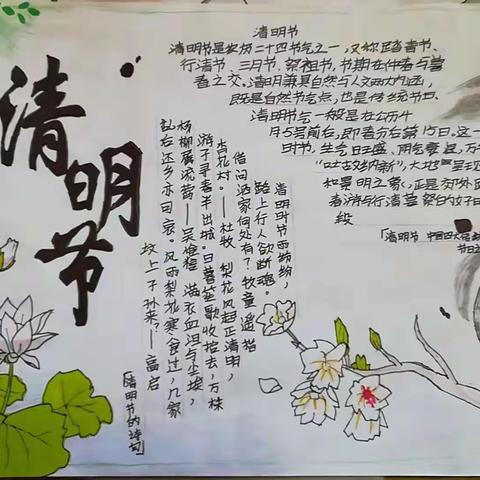 清明节
清明节
清明节是农历二十四节气之一,又称踏青节、
行清节、三月节、祭祖节,节期在仲春与暮
春之交。清明兼具自然与人文两大内涵,
既是自然节气点,也是传统节日。
清明节气一般是在公历4
月5号前后,即春分后第15日。这一
时节,生气旺盛,阴气衰退,万
“吐故纳新”,大地呈现
和景明之象,正是郊外
春游与行清墓祭的好日
段
「清明节 中国四大传统
节日之
清明时节雨纷纷,
路上行人欲断魂。
借问酒家何处有?牧童遥指
杏花村。——杜牧 梨花风起正清明,
游子寻春半出城。日暮笙歌收拾去,万株
杨柳属流莺——吴惟信 满衣血泪与尘埃,
乱后还乡亦可哀。风雨梨花寒食过,几家
坟上子孙来?——高启
「清明节的诗句」